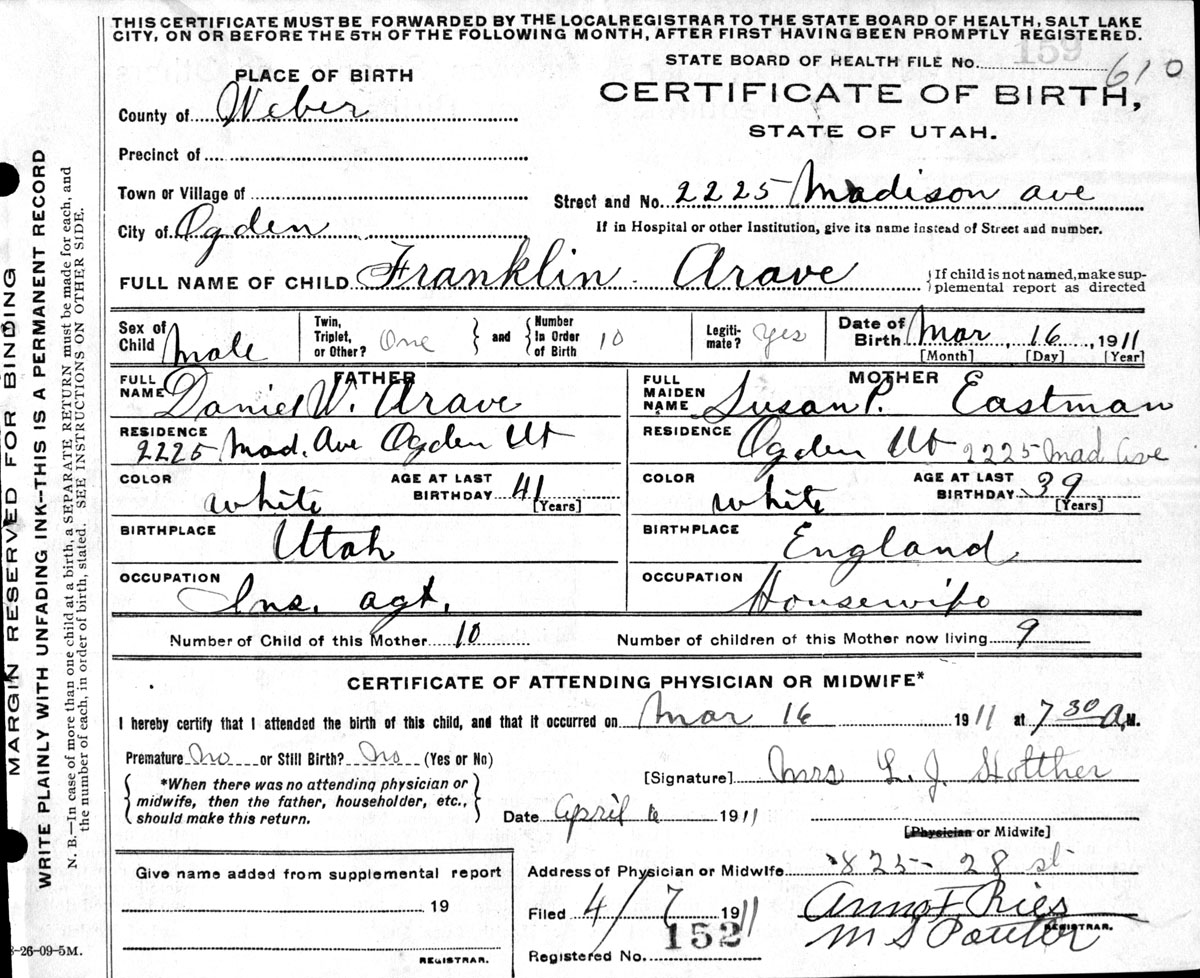 THIS CERTIFICATE MUST BE FORWARDED BY THE LOCAL REGISTRAR TO THE STATE BOARD OF HEALTH, SALT LAKE
CITY, ON OR BEFORE THE 5TH OF THE FOLLOWING MONTH, AFTER FIRST HAVING BEEN PROMPTLY REGISTERED.
159
STATE BOARD OF HEALTH FILE No. 610
PLACE OF BIRTH
CERTIFICATE OF BIRTH,
STATE OF UTAH.
County of Weber
Precinct of
Town or Village of
Street and No. 2225 Madison ave
City of Ogden
If in Hospital or other Institution, give its name instead of Street and number.
FULL NAME OF CHILD Franklin Arave {If child is not named, make sup-
plemental report as directed
Sex of Child Male Twin, Triplet, or Other? One } and { Number In Order of Birth 10 Legiti-mate? Yes Date of Birth Mar 16, 1911
[Month] [Day] [Year]
FATHER MOTHER
FULL NAME Daniel W. Arave FULL MAIDEN NAME Susan P. Eastman
RESIDENCE 2225 Mad. Ave Ogden Ut RESIDENCE Ogden Ut 2225 Mad Ave
COLOR white AGE AT LAST BIRTHDAY 41 [Years] COLOR white AGE AT LAST BIRTHDAY 39 [Years]
BIRTHPLACE Utah BIRTHPLACE England
OCCUPATION Ins. agt. OCCUPATION Housewife
Number of Child of this Mother 10 Number of children of this Mother now living 9
CERTIFICATE OF ATTENDING PHYSICIAN OR MIDWIFE*
I hereby certify that I attended the birth of this child, and that it occurred on Mar 16 1911 at 7 30 A.M.
Premature No or Still Birth? No (Yes or No)
{ *When there was no attending physician or
midwife, then the father, householder, etc.,
should make this return. }
[Signature] Mrs L. J.
Date April 6 1911
[Physician or Midwife]
Give name added from supplemental report
19
REGISTRAR.
Address of Physician or Midwife 825 - 28 st
Filed 4/7 1911 Anna F. Ries
REGISTRAR.
M S
Registered No. 152
MARGIN RESERVED FOR BINDING
WRITE PLAINLY WITH UNFADING INK--THIS IS A PERMANENT RECORD
N. B.—In case of more than one child at a birth, a SEPARATE RETURN must be made for each, and
the number of each, in order of birth, stated. SEE INSTRUCTIONS ON OTHER SIDE.
-26-09-5M.